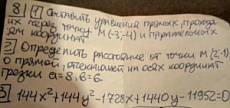 8] 1) Составить уравнения прямых, проходя-
их через точку M(-3;-4) и параллельных
ям координат
2 Определить расстояние от точки M(2;-1)
о прямой, отсекающей на осях координат
трезки a=8, b=6.
144x²+144y²-1728x+1440y-11952=0